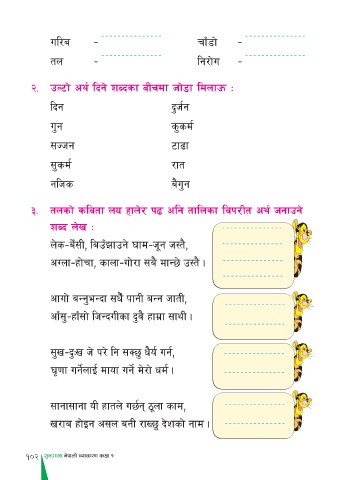 गरिब - चाँडो -
तल - निरोग -
२. उल्टो अर्थ दिने शब्दका बीचमा जोडा मिलाऊ :
दिन दुर्जन
गुन कुकर्म
सज्जन टाढा
सुकर्म रात
नजिक बैगुन
३. तलको कविता लय हालेर पढ अनि तालिका विपरीत अर्थ जनाउने
शब्द लेख :
लेक-बेँसी, बिउँझाउने घाम-जून जस्तै,
अग्ला-होचा, काला-गोरा सबै मान्छे उस्तै ।
आगो बन्नुभन्दा सधैँ पानी बन्न जाती,
आँसु-हाँसो जिन्दगीका दुवै हाम्रा साथी ।
सुख-दुःख जे परे नि सक्छु धैर्य गर्न,
घृणा गर्नेलाई माया गर्ने मेरो धर्म ।
सानासाना यी हातले गर्छन् ठूला काम,
खराब होइन असल बनी राख्छु देशको नाम ।
१०२ नेपाली व्याकरण कक्षा १